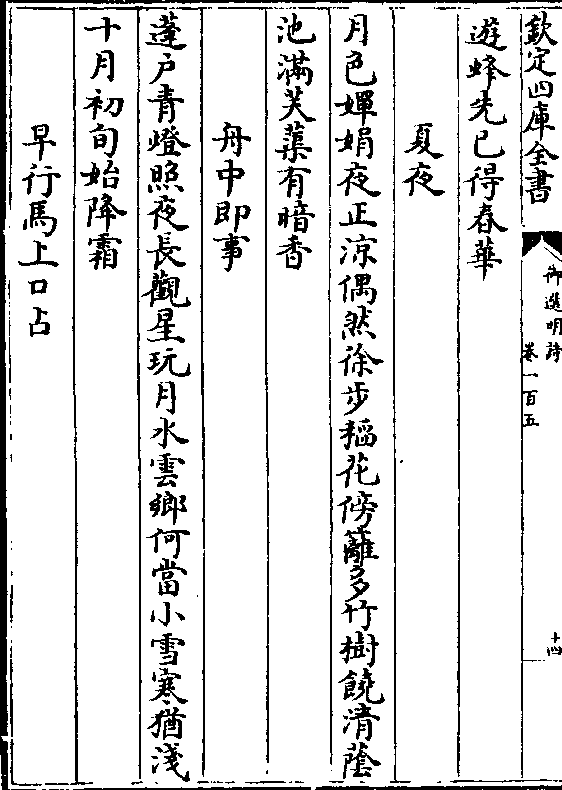 欽定四庫全書
御選明詩
卷一百五
十四
遊蜂先已得春華
夏夜
月色嬋娟夜正涼偶然徐步稻花傍籬多竹樹饒清蔭
池滿芙蕖有暗香
舟中即事
蓬户青燈照夜長觀星玩月水雲鄉何當小雪寒猶淺
十月初旬始降霜
早行馬上口占